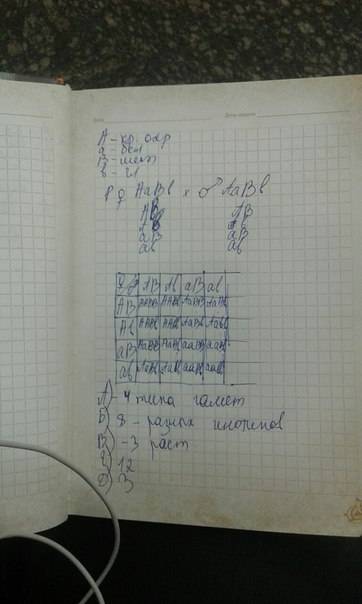 А - кр. окр
а - бел
В -
в - гл
Р ♀ АаВв х ♂ АаВв
АВ АВ
Ав Ав
аВ аВ
ав ав
АВ Ав аВ ав
АВ ААВВ ААВв АаВВ АаВв
Ав ААВв ААвв АаВв Аавв
аВ АаВВ АаВв ааВВ ааВв
ав АаВв Аавв ааВв аавв
А) - 4 типа гамет
Б) 8 - разных
В) - 3 раст
Г) 12
Д) 3